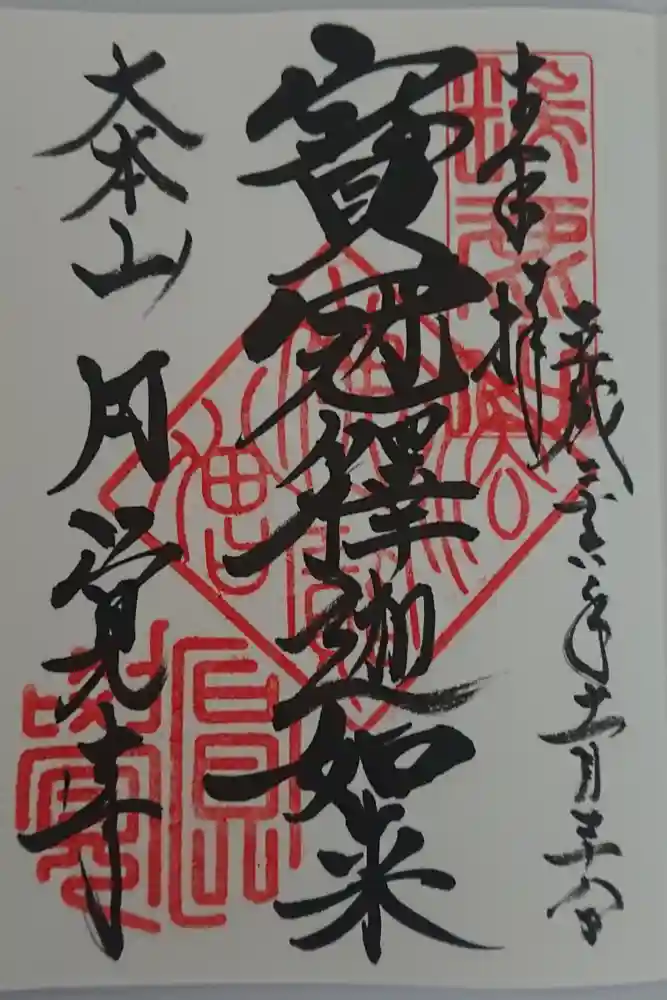 奉拝
平成二十八年十一月
寶冠釋迦如来
大本山円覚寺
佛法僧寶